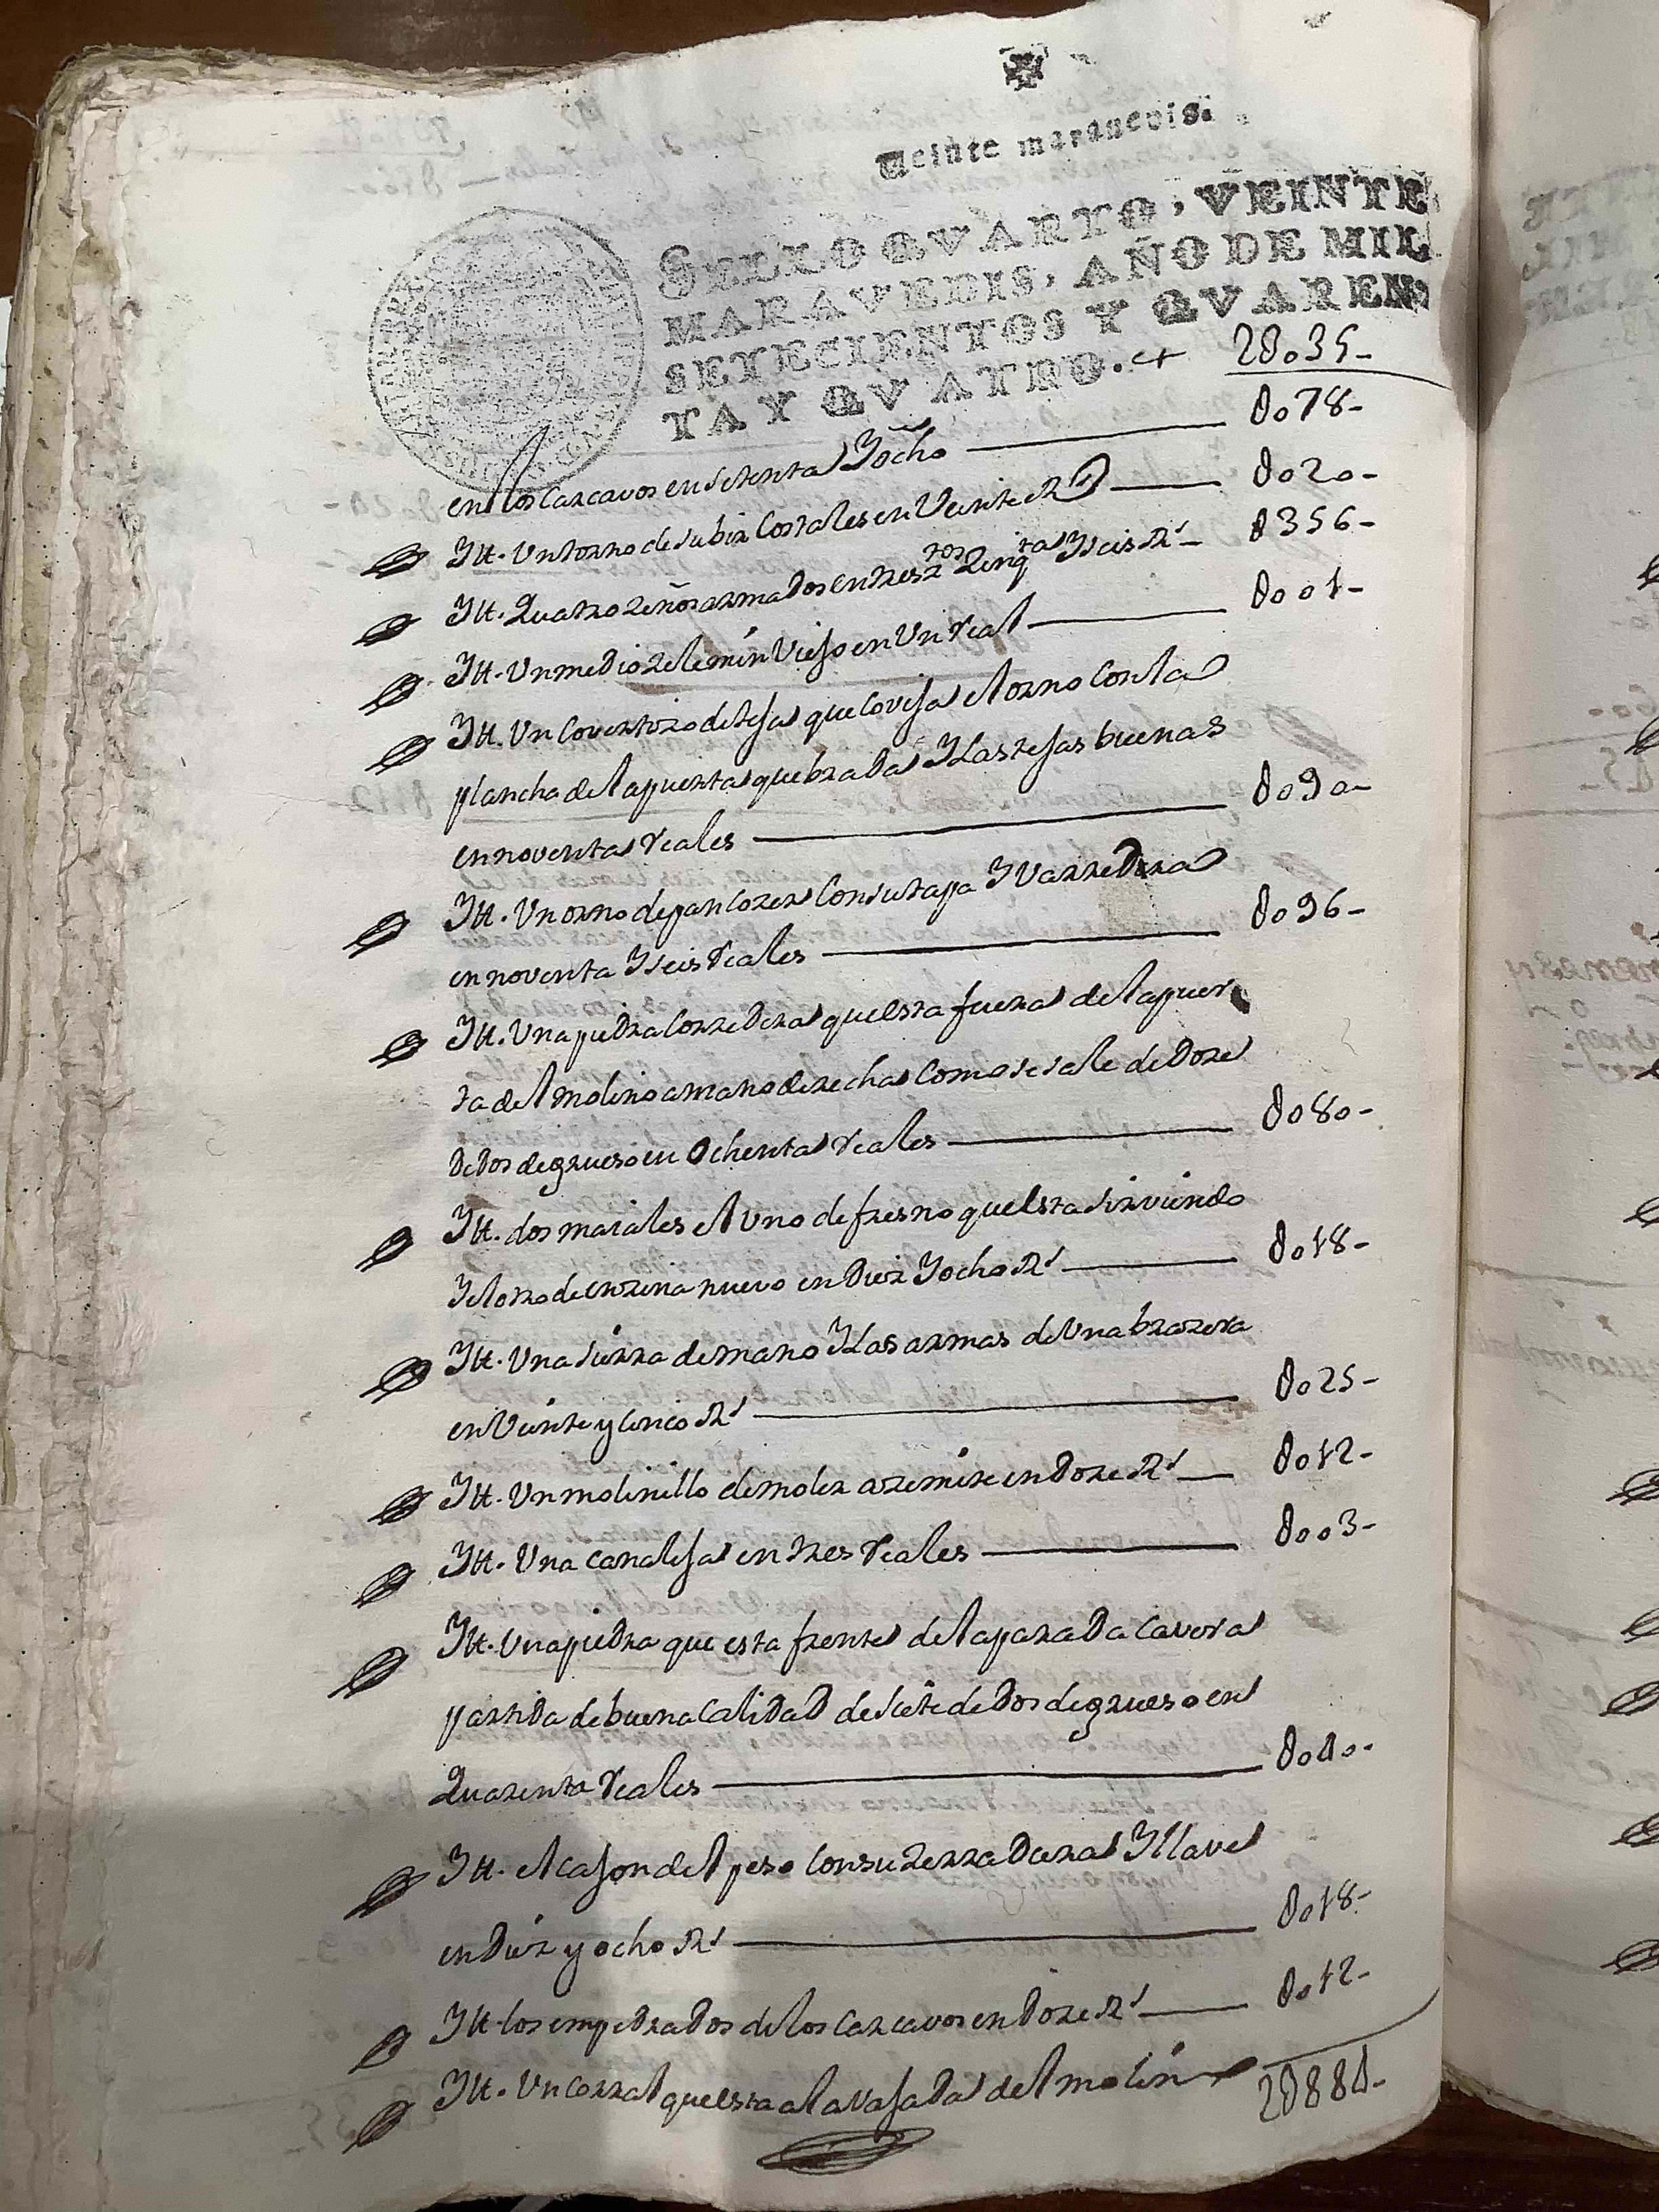 Veinte marauedis.
SELLO QVARTO, VEINTE
MARAVEDIS, AÑO DE MIL
SETECIENTOS Y QVAREN
TA Y QVATRO.
2U035-
en los carcavos en setenta Y ocho — U078-
Itt. Un torno de subir Costales en Veinte Rs — U020-
Itt. Quatro zeños armados en tresztos Zinqta Y seis Rs — U356-
Itt. Un medio zelemin Viejo en Un real — U001-
Itt. Un Covertizo de teja que Covija el torno Con la
plancha de la puerta quebrada Y Las tejas buenas
en noventa reales — U090-
Itt. Un orno de pan Cozer Con su tapa Y Varredera
en noventa Y seis reales — U096-
Itt. Una piedra Corredera que esta fuera de la puer
ta del molino a mano derecha Como se sale de Doze
dedos de grueso en Ochenta reales — U080-
Itt. dos maiales el Uno de fresno que esta sirviendo
Y el otro de enzina nuevo en Diez Y ocho Rs — U018-
Itt. Una sierra de mano Y Las armas de Una brazera
en Veinte y Cinco Rs — U025-
Itt. Un molinillo de moler azemite en Doze Rs — U012-
Itt. Una canaleja en tres reales — U003-
Itt. Una piedra que esta frente de la parada Cavera
partida de buena Calidad de siete dedos de grueso en
Quarenta reales — U040-
Itt. el cajon del peso Con su zerradura Y llave
en Diez y ocho Rs — U018-
Itt. los empedrados de los Carcavos en Doze Rs — U012-
Itt. Un Corral que esta a la Vajada del molino
2U884-